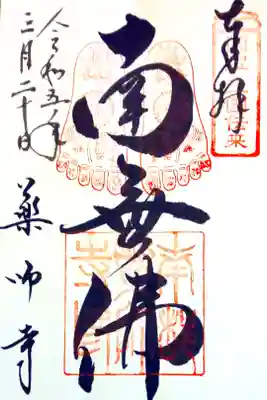 奉拝
南無佛
令和五年
三月二十日
薬師寺